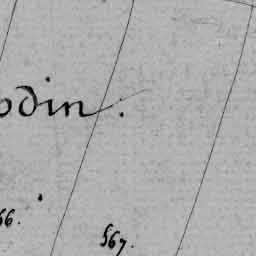 odin.
66.
567.